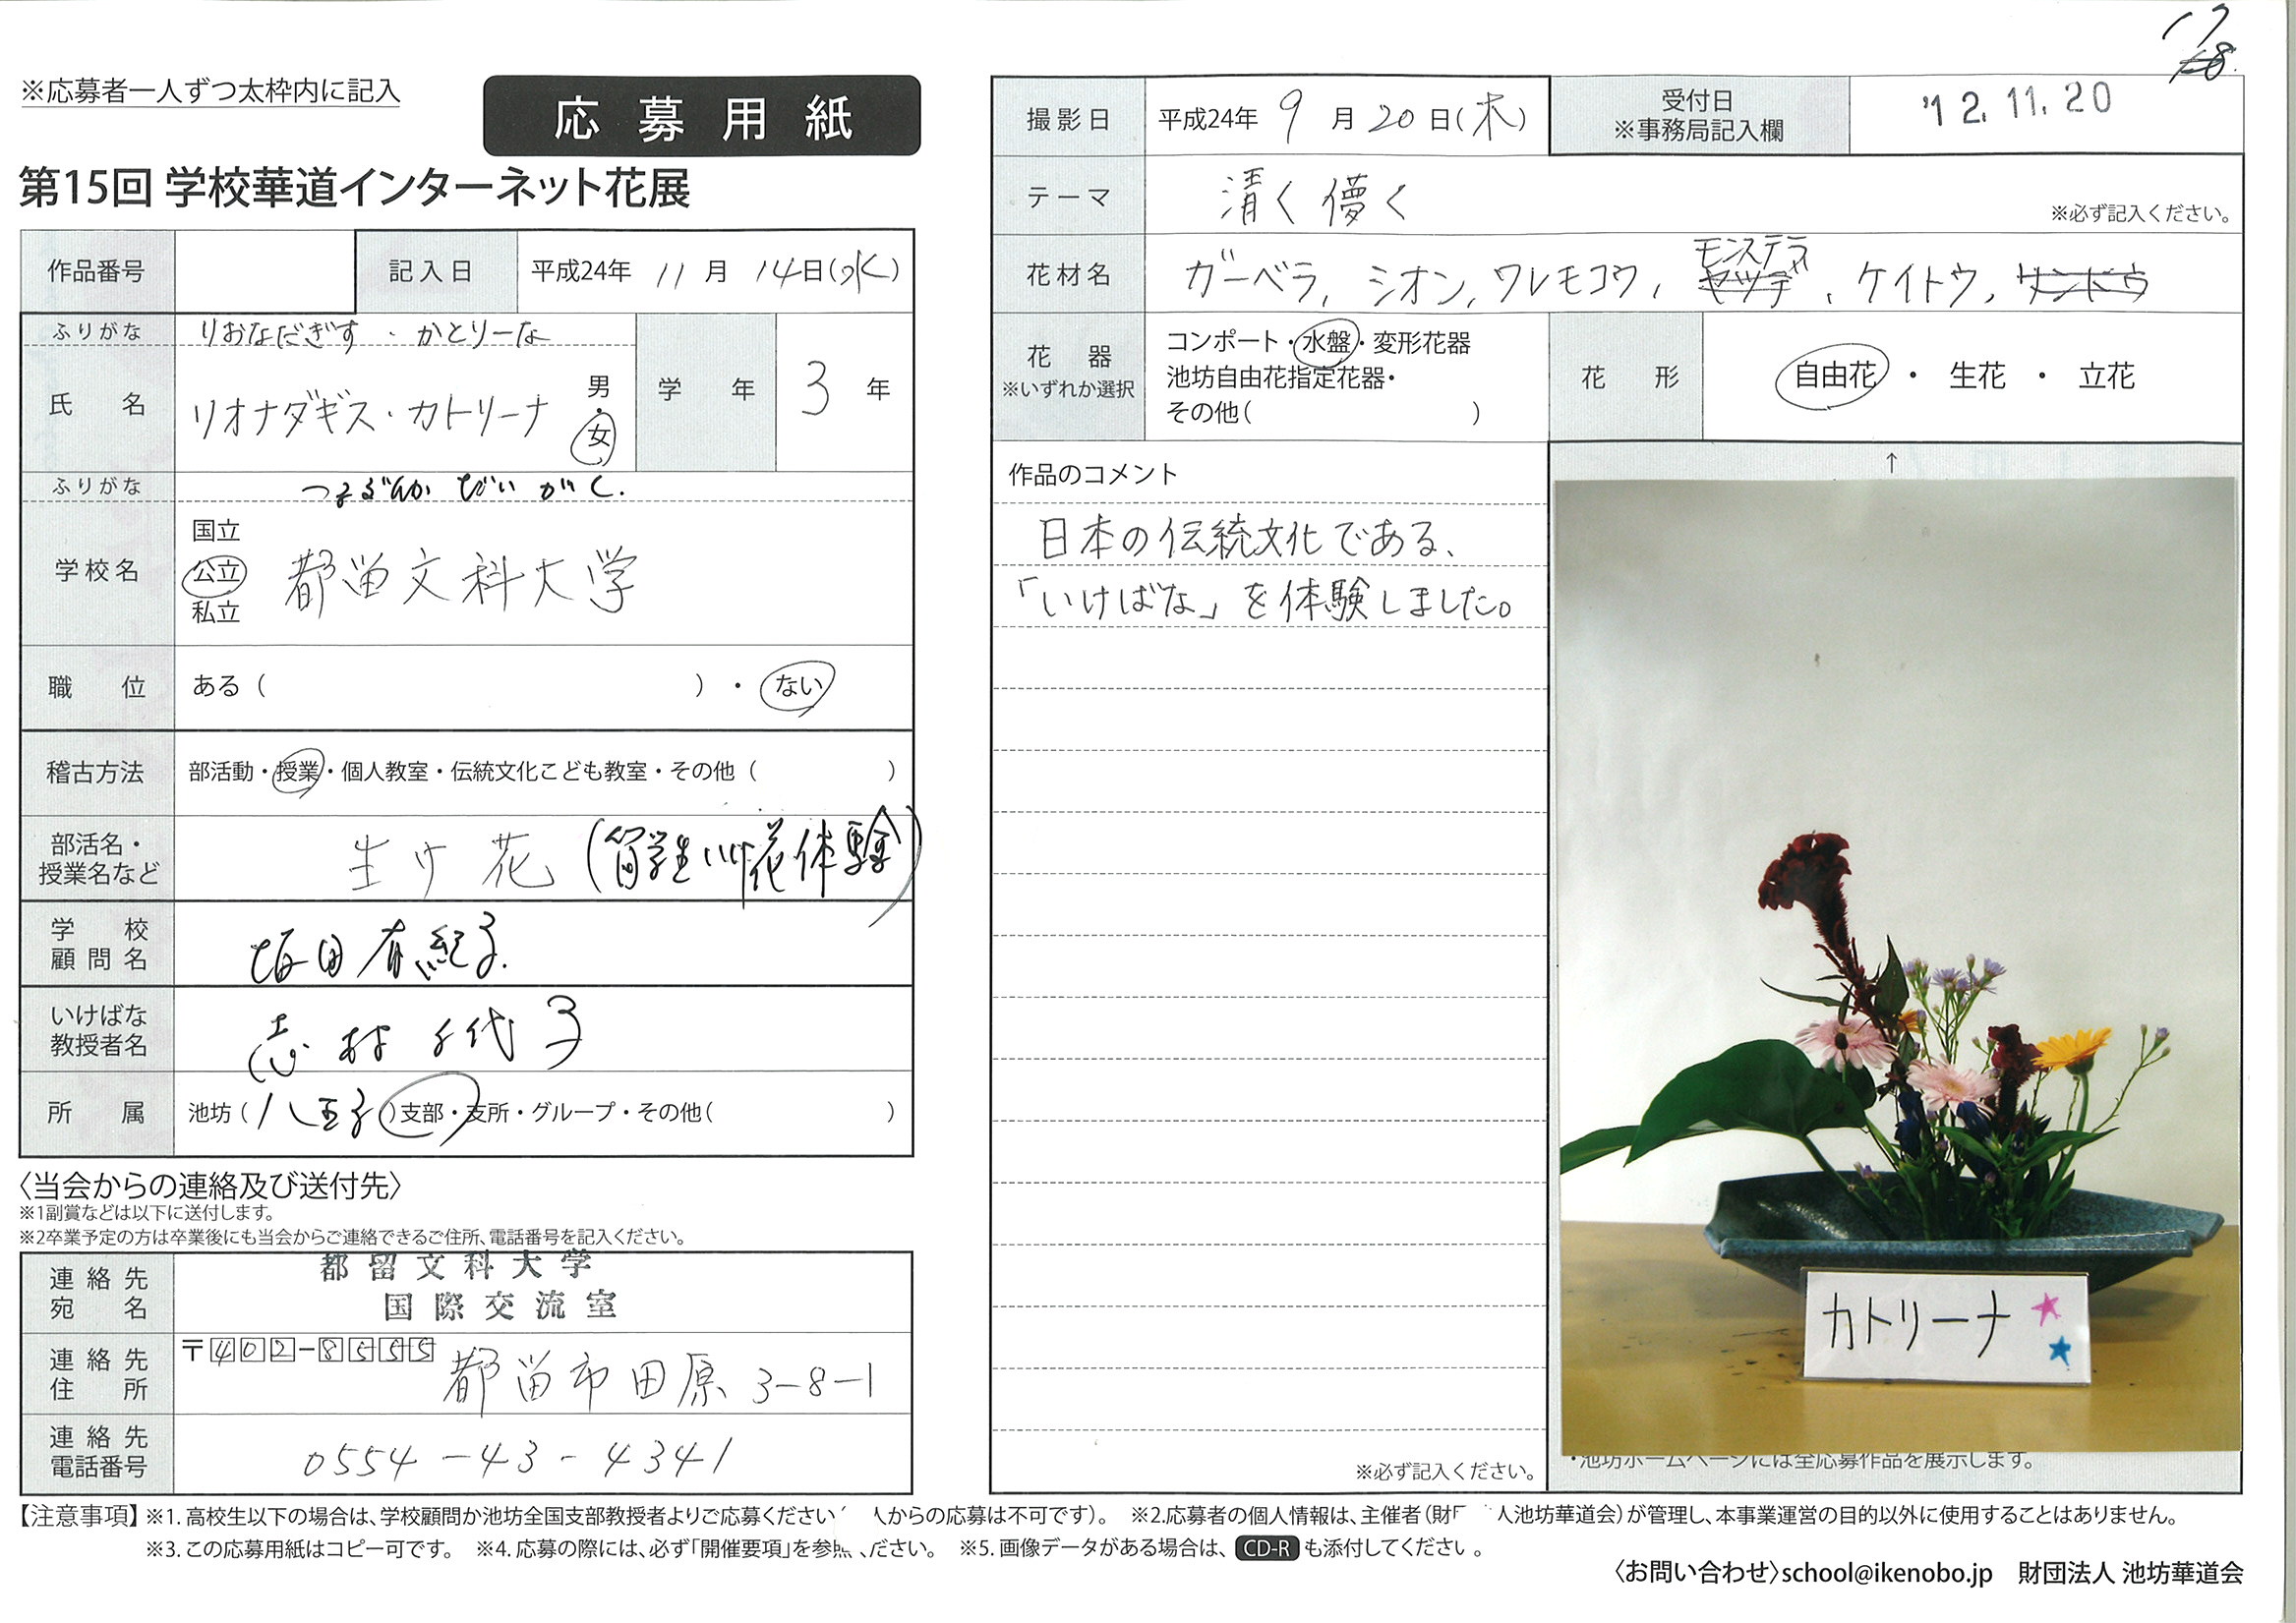 17
※応募者一人ずつ太枠内に記入
応募用紙
第15回 学校華道インターネット花展
作品番号
記入日 平成24年 11月 14日(水)
ふりがな りおなだぎす・かとりーな
氏名 リオナダギス・カトリーナ 男・女
学年 3年
ふりがな つるぶんかだいがく.
学校名 国立 公立 私立 都留文科大学
職位 ある( )・ない
稽古方法 部活動・授業・個人教室・伝統文化こども教室・その他( )
部活名・授業名など 生け花(留学生いけ花体験)
学校顧問名 坂田有紀子.
いけばな教授者名 志村千代子
所属 池坊(八王子)支部・支所・グループ・その他( )
〈当会からの連絡及び送付先〉
※1副賞などは以下に送付します。
※2卒業予定の方は卒業後にも当会からご連絡できるご住所、電話番号を記入ください。
連絡先宛名 都留文科大学
国際交流室
連絡先住所 〒402-8555 都留市田原3-8-1
連絡先電話番号 0554-43-4341
撮影日 平成24年 9月20日(木)
受付日
※事務局記入欄
'12.11.20
テーマ 清く儚く ※必ず記入ください。
花材名 ガーベラ, シオン, ワレモコウ, モンステラ, ケイトウ,
花器 ※いずれか選択
コンポート・水盤・変形花器
池坊自由花指定花器・
その他( )
花形 自由花・生花・立花
作品のコメント
日本の伝統文化である、
「いけばな」を体験しました。
※必ず記入ください。
↑
カトリーナ
・池坊ホームページには全応募作品を展示します。
【注意事項】※1. 高校生以下の場合は、学校顧問か池坊全国支部教授者よりご応募ください 人からの応募は不可です)。 ※2.応募者の個人情報は、主催者(財 人池坊華道会)が管理し、本事業運営の目的以外に使用することはありません。
※3. この応募用紙はコピー可です。 ※4. 応募の際には、必ず「開催要項」を参照 ください。 ※5. 画像データがある場合は、CD-Rも添付してください。
〈お問い合わせ〉school@ikenobo.jp 財団法人 池坊華道会